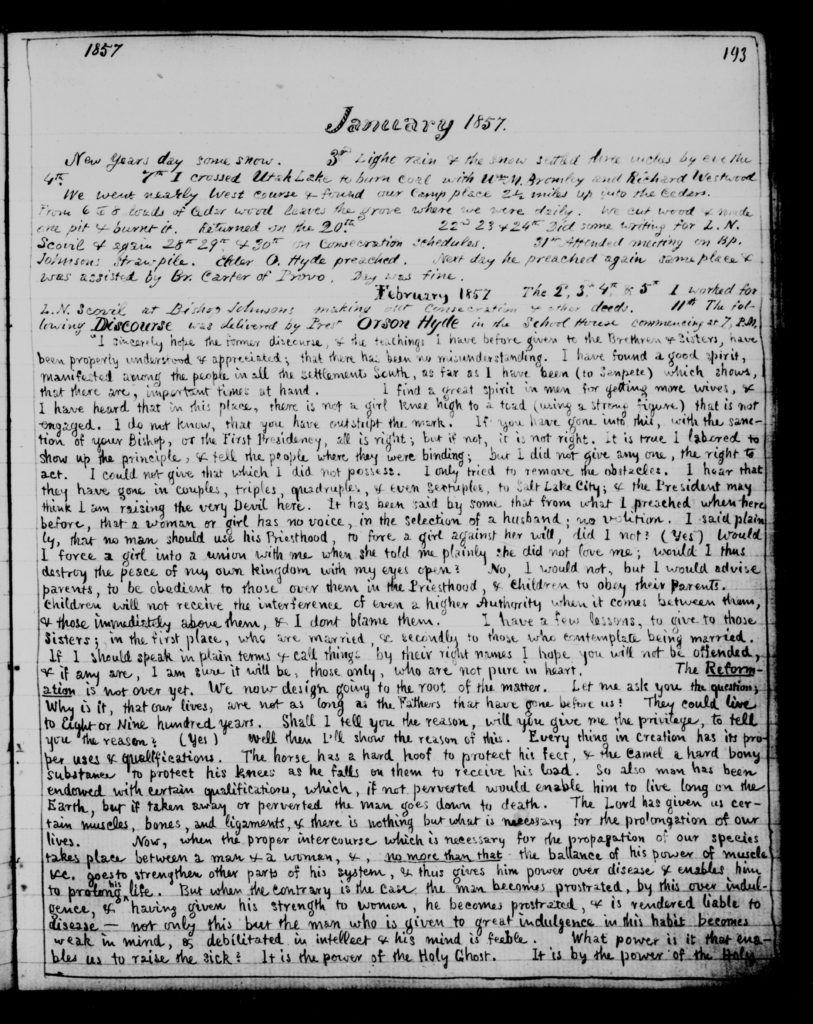 1857
193
January 1857.
New Years day some snow. 3rd Light rain & the snow settled three inches by eve the
4th. 7th I crossed Utah Lake to burn Coal with Wm Y. Bromley and Richard Westwood
We went nearly West course & found our Camp place 2½ miles up into the Cedars.
From 6 to 8 loads of Cedar wood leaves the grove where we were daily. We cut wood & made
one pit & burnt it. Returned on the 20th 22nd 23 & 24th Did some writing for L. N.
Scovil & again 28th 29th & 30th on Consecration schedules. 31st Attended meeting on Bp.
Johnsons Straw-pile. Elder O. Hyde preached. Next day he preached again same place &
was assisted by Br. Carter of Provo. Day was fine.
February 1857 The 2d, 3d 4th & 5th I worked for
L.N. Scovil at Bishop Johnsons making out Consecration & other deeds. 11th The fol-
lowing Discourse was delivered by Prest Orson Hyde in the School House commencing at 7, P.M.
"I sincerely hope the former discourse, & the teachings I have before given to the Brethren & Sisters, have
been properly understood & appreciated; that there has been no misunderstanding. I have found a good spirit,
manifested among the people in all the settlements South, as far as I have been (to Sanpete) which shows,
that there are, important times at hand. I find a great spirit in men for getting more wives, &
I have heard that in this place, there is not a girl knee high to a toad (using a strong figure) that is not
engaged. I do not know, that you have outstript the mark. If you have gone into this, with the sanc-
tion of your Bishop, or the First Presidency, all is right; but if not, it is not right. It is true I labored to
show up the principle, & tell the people where they were binding; but I did not give any one, the right to
act. I could not give that which I did not possess. I only tried to remove the obstacles. I hear that
they have gone in couples, triples, quadruples, & even Sextuples, to Salt Lake City; & the President may
think I am raising the very Devil here. It has been said by some that from what I preached when here
before, that a woman or girl has no voice, in the selection of a husband; no volition. I said plain-
ly, that no man should use his Priesthood, to fore a girl against her will, did I not? (Yes) Would
I force a girl into a union with me when she told me plainly she did not love me; would I thus
destroy the peace of my own kingdom with my eyes open? No, I would not, but I would advise
parents, to be obedient to those over them in the Priesthood, & Children to obey their parents.
Children will not receive the interference of even a higher Authority when it comes between them,
& those immediately above them, & I dont blame them. I have a few lessons, to give to those
Sisters; in the first place, who are married, & secondly to those who contemplate being married.
If I should speak in plain terms & call things by their right names I hope you will not be offended,
& if any are, I am sure it will be, those only, who are not pure in heart. The Reform-
ation is not over yet. We now design going to the root of the matter. Let me ask you the question;
Why is it, that our lives, are not as long as the Fathers that have gone before us? They could live
to Eight or Nine hundred years. Shall I tell you the reason, will you give me the privilege, to tell
you the reason? (Yes) Well then I'll show the reason of this. Every thing in creation has its pro-
per uses & qualifications. The horse has a hard hoof to protect his feet, & the Camel a hard bony
substance to protect his knees as he falls on them to receive his load. So also man has been
endowed with certain qualifications, which, if not perverted would enable him to live long on the
Earth, but if taken away or perverted the man goes down to death. The Lord has given us cer-
tain muscles, bones, and ligaments, & there is nothing but what is necessary for the prolongation of our
lives. Now, when the proper intercourse which is necessary for the propagation of our species
takes place between a man & a woman, &, no more than that the ballance of his power of muscle
&c. goes to strengthen other parts of his system, & thus gives him power over disease & enables him
to prolong his life. But when the contrary is the case the man becomes prostrated, by this over indul-
gence, & having given his strength to women, he becomes prostrated, & is rendered liable to
disease — not only this but the man who is given to great indulgence in this habit becomes
weak in mind, & debilitated in intellect & his mind is feeble. What power is it that ena-
bles us to raise the sick? It is the power of the Holy Ghost. It is by the power of the Holy